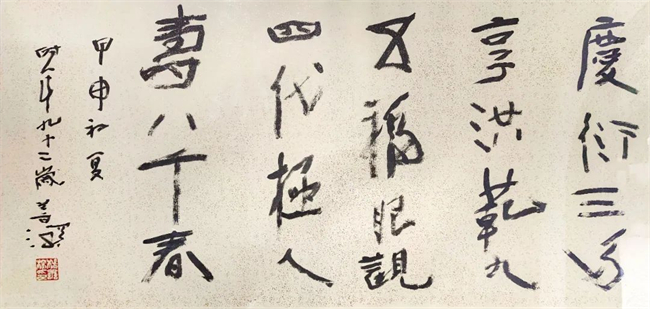 慶衍三多
享洪範九
五福眼觀
四代極人
壽八千春
甲申初夏
時年九十二歲